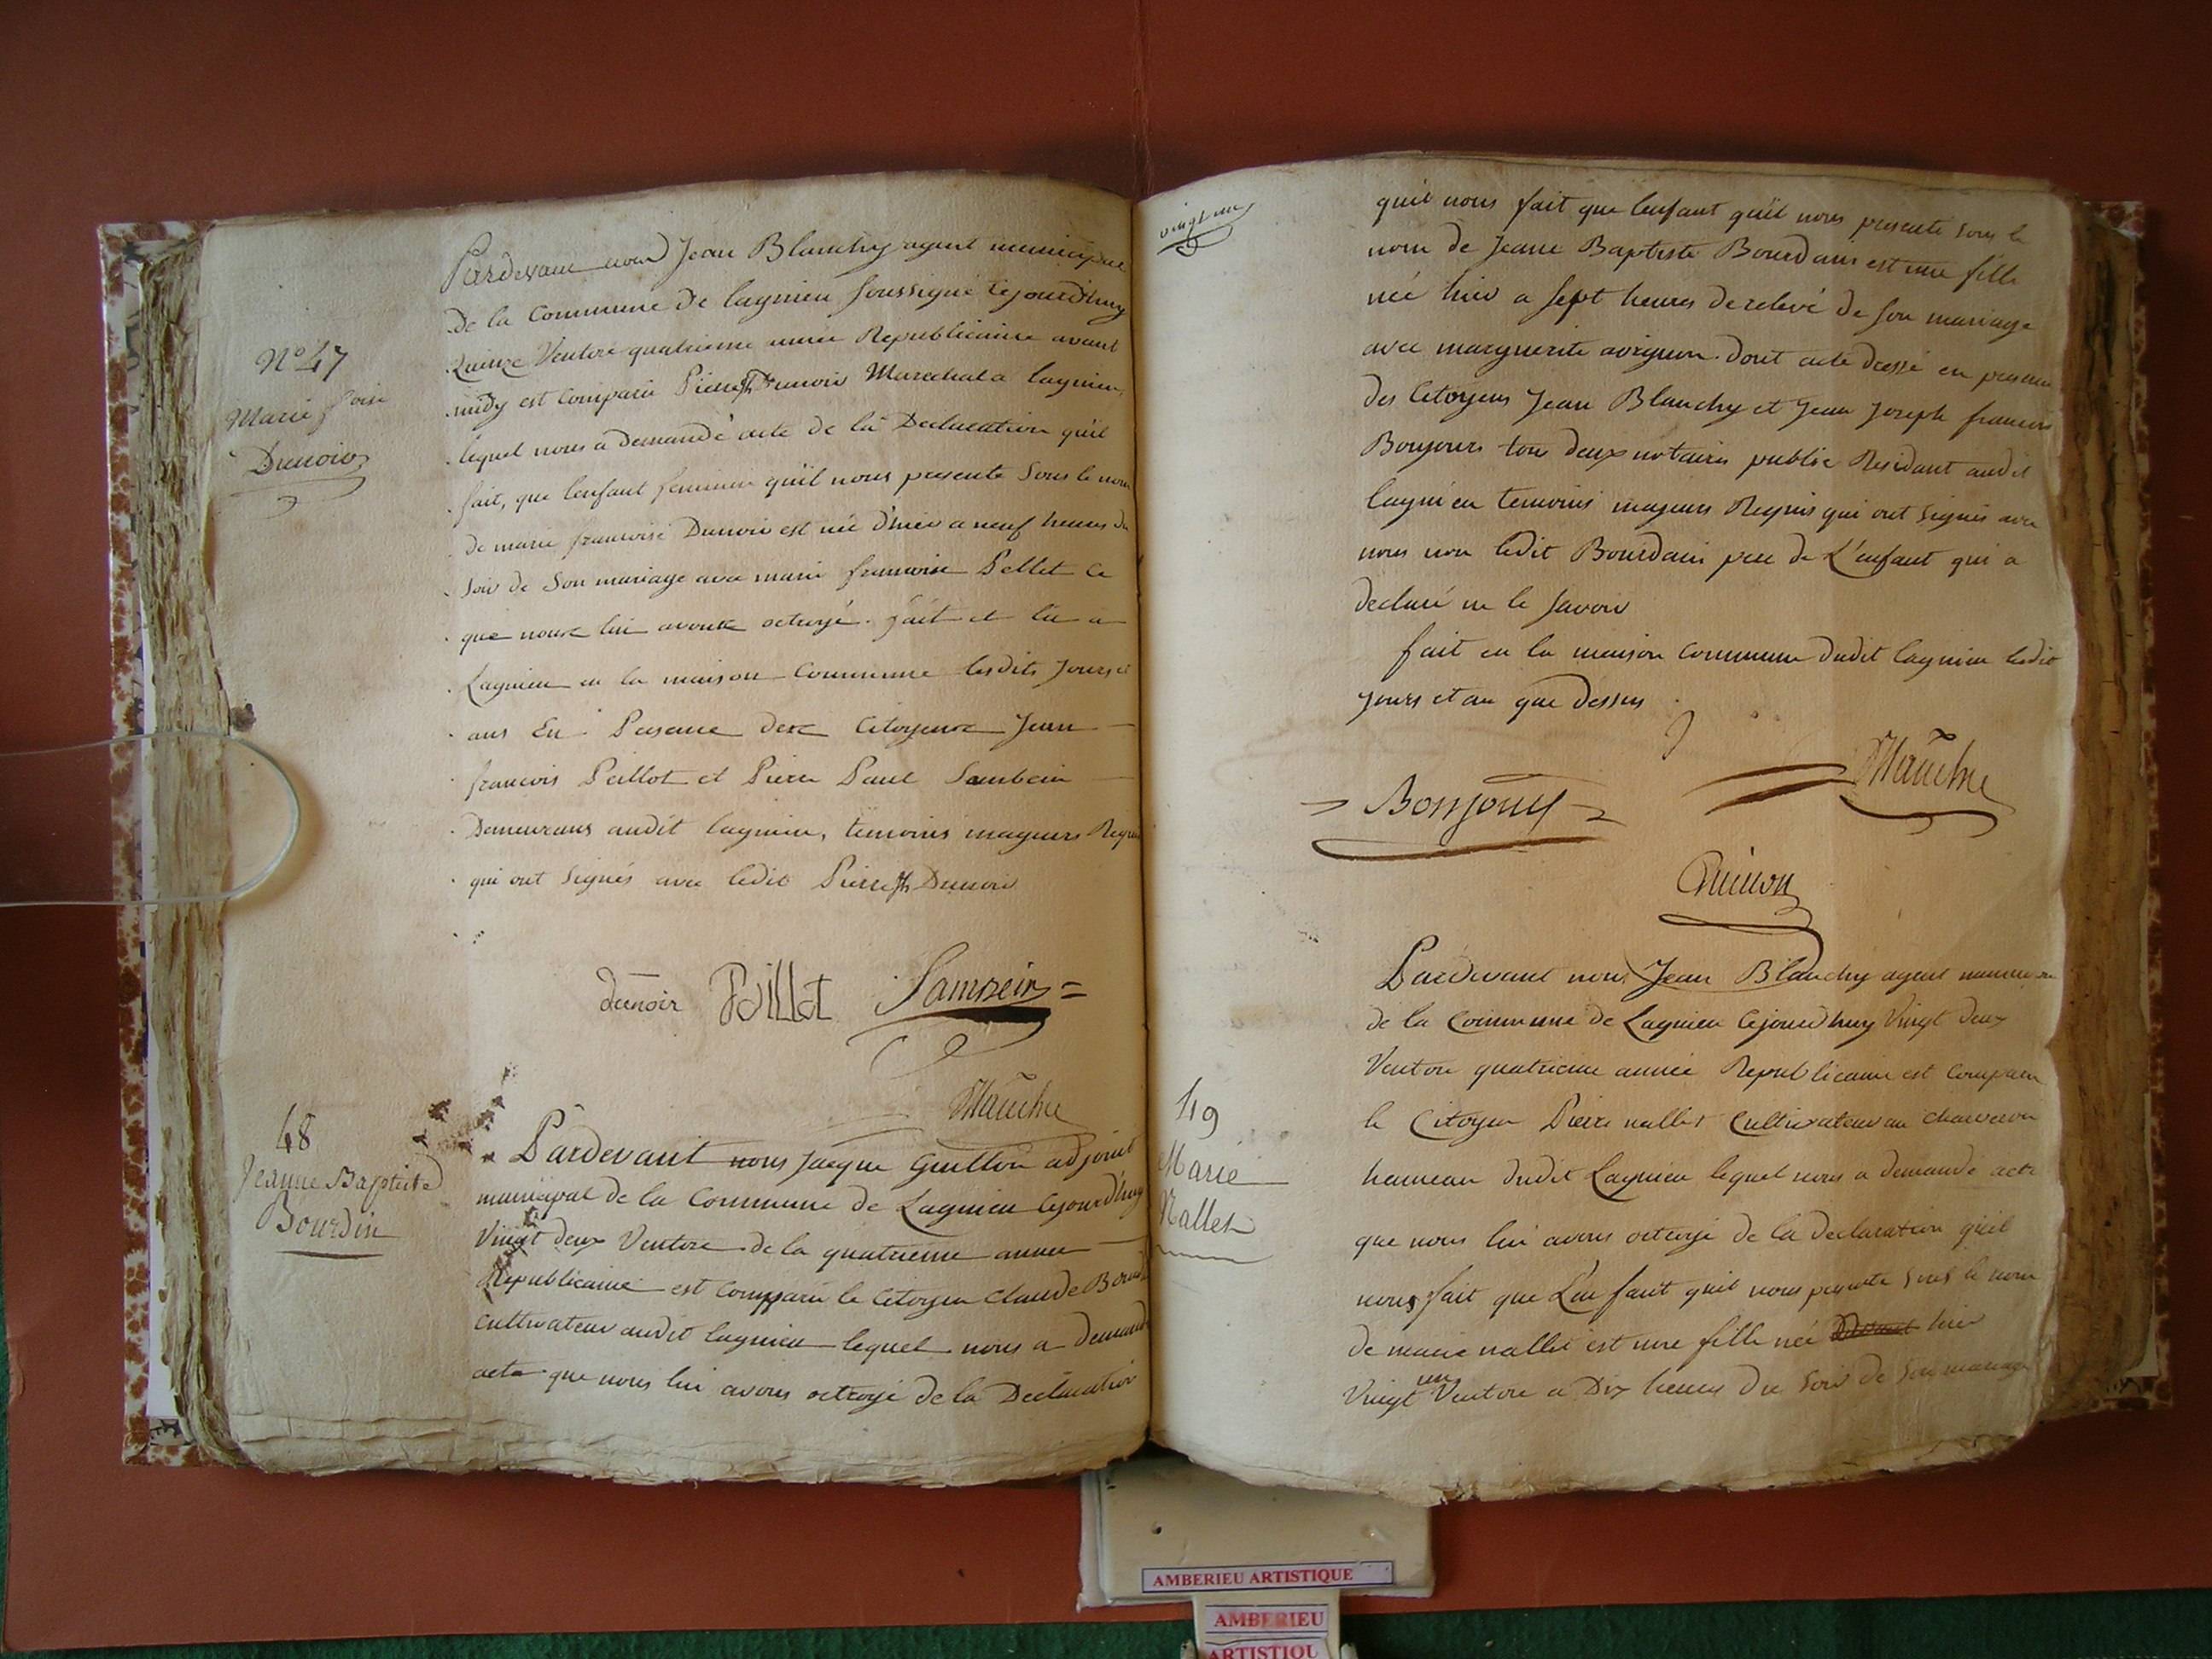 N° 47
Marie foise
Dunoir
Pardevant nous Jean Blanchy agent municipal
de la Commune de lagnieu soussigné Cejourd'huy
quinze Ventose quatrieme année Republicaine avant
midy est Comparu Pierre Dunoir Marechal a lagnieu,
lequel nous a demandé acte de la Declaration qu'il
fait, que l'enfant feminin qu'il nous presente Sous le nom
de marie francoise Dunoir est née d'hier a neuf heures du
Soir de Son mariage avec marie francoise Pellet Ce
que nous lui avons octroyé. fait et lu a
Lagnieu en la maison Commune lesdits Jours et
ans En Presence des Citoyens Jean
francois Peillot et Pierre Paul Sambein
Demeurans audit lagnieu, temoins mageurs Requis
qui ont Signés avec ledit Pierre Dunoir
dunoir Peillot =
48
Jeanne Baptiste
Bourdin
Pardevant nous Jacque Guillon adjoint
municipal de la Commune de Lagnieu Cejourd'huy
Vingt deux Ventose de la quatrieme année
Republicaine est Comparu le Citoyen Claude
Cultivateur audit lagnieu lequel nous a demandé
acte que nous lui avons octroyé de la Declaration
vingt un
quil nous fait que lenfant quil nous presente sous le
nom de Jeanne Baptiste Bourdain est une fille
née hier a sept heures de relevé de son mariage
avec marguerite avignon. Dont acte dressé en presence
des Citoyens Jean Blanchy et Jean Joseph francois
Bonjours tous deux notaires public Residant audit
lagnieu temoins mageurs Requis qui ont signés avec
nous non ledit Bourdain pere de L'enfant qui a
declaré ne le savoir
fait en la maison commune dudit lagnieu ledit
jours et an que dessus
Bonjour
Pardevant nous Jean Blanchy agent municipal
de la Commune de Lagnieu Cejourdhuy Vingt deux
Ventose quatrieme année Republicaine est Comparu
49
Marie
Nallet
le Citoyen Pierre nallet Cultivateur au
hameau dudit Lagnieu lequel nous a demandé acte
que nous lui avons octroyé de la declaration quil
nous fait que L'enfant quil nous presente sous le nom
de marie nallet est une fille née hier
Vingt un Ventose a Dix heures du Soir de son mariage
AMBERIEU ARTISTIQUE
AMBERIEU
ARTISTIQU